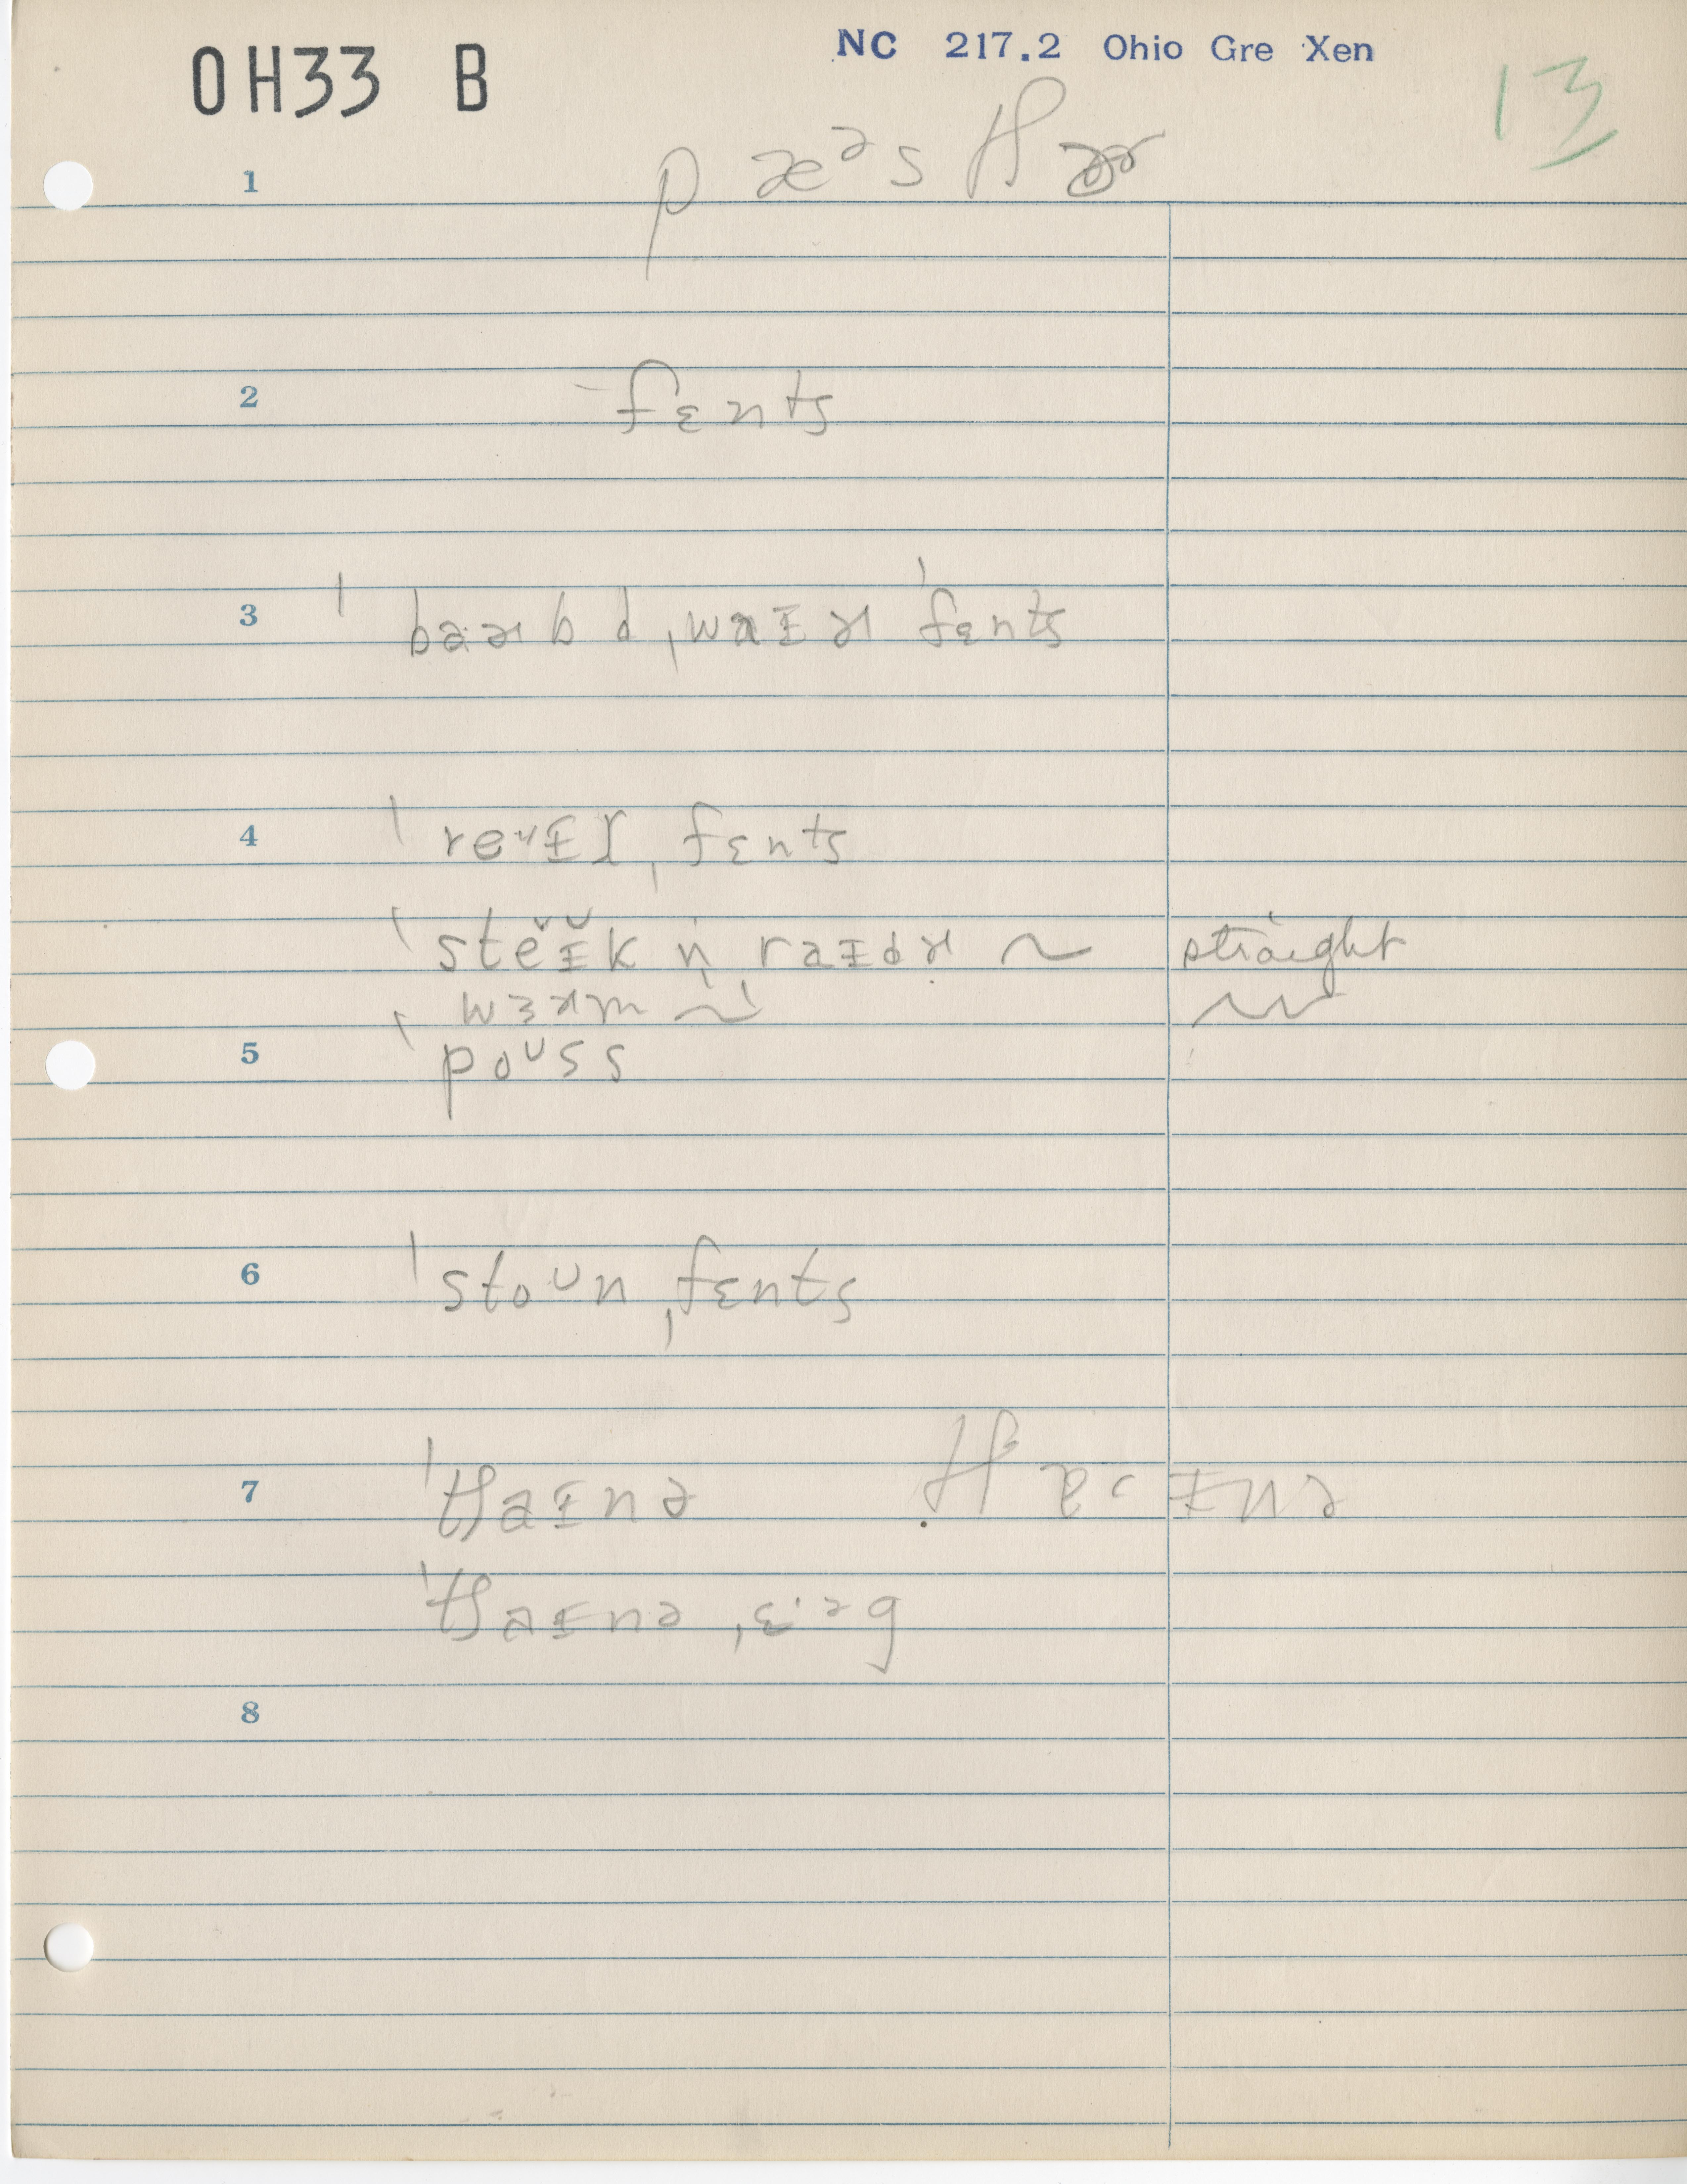 OH33 B
NC 217.2 Ohio Gre Xen
13
1 pæᵊsʧɚ
2 fɛnts
3 ˈbaɚbdˌwaɪɚ ˈfɛnts
4 ˈreᵘɪlˌfɛnts
ˈstĕɪ̆k n̩ raɪdɚ ~ straight
ˈwɝm ~
5 ˈpoᴜss
6 ˈstoᴜnˌfɛnts
7 ˈʧaɪnə
ˈʧaɪnəˌɛˑᵊg
8